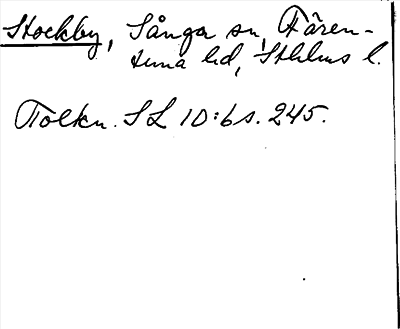 Stockby, Sånga sn, Fären-
tuna hd, Sthlms l.
Tolkn. SL 10:6 s. 245.